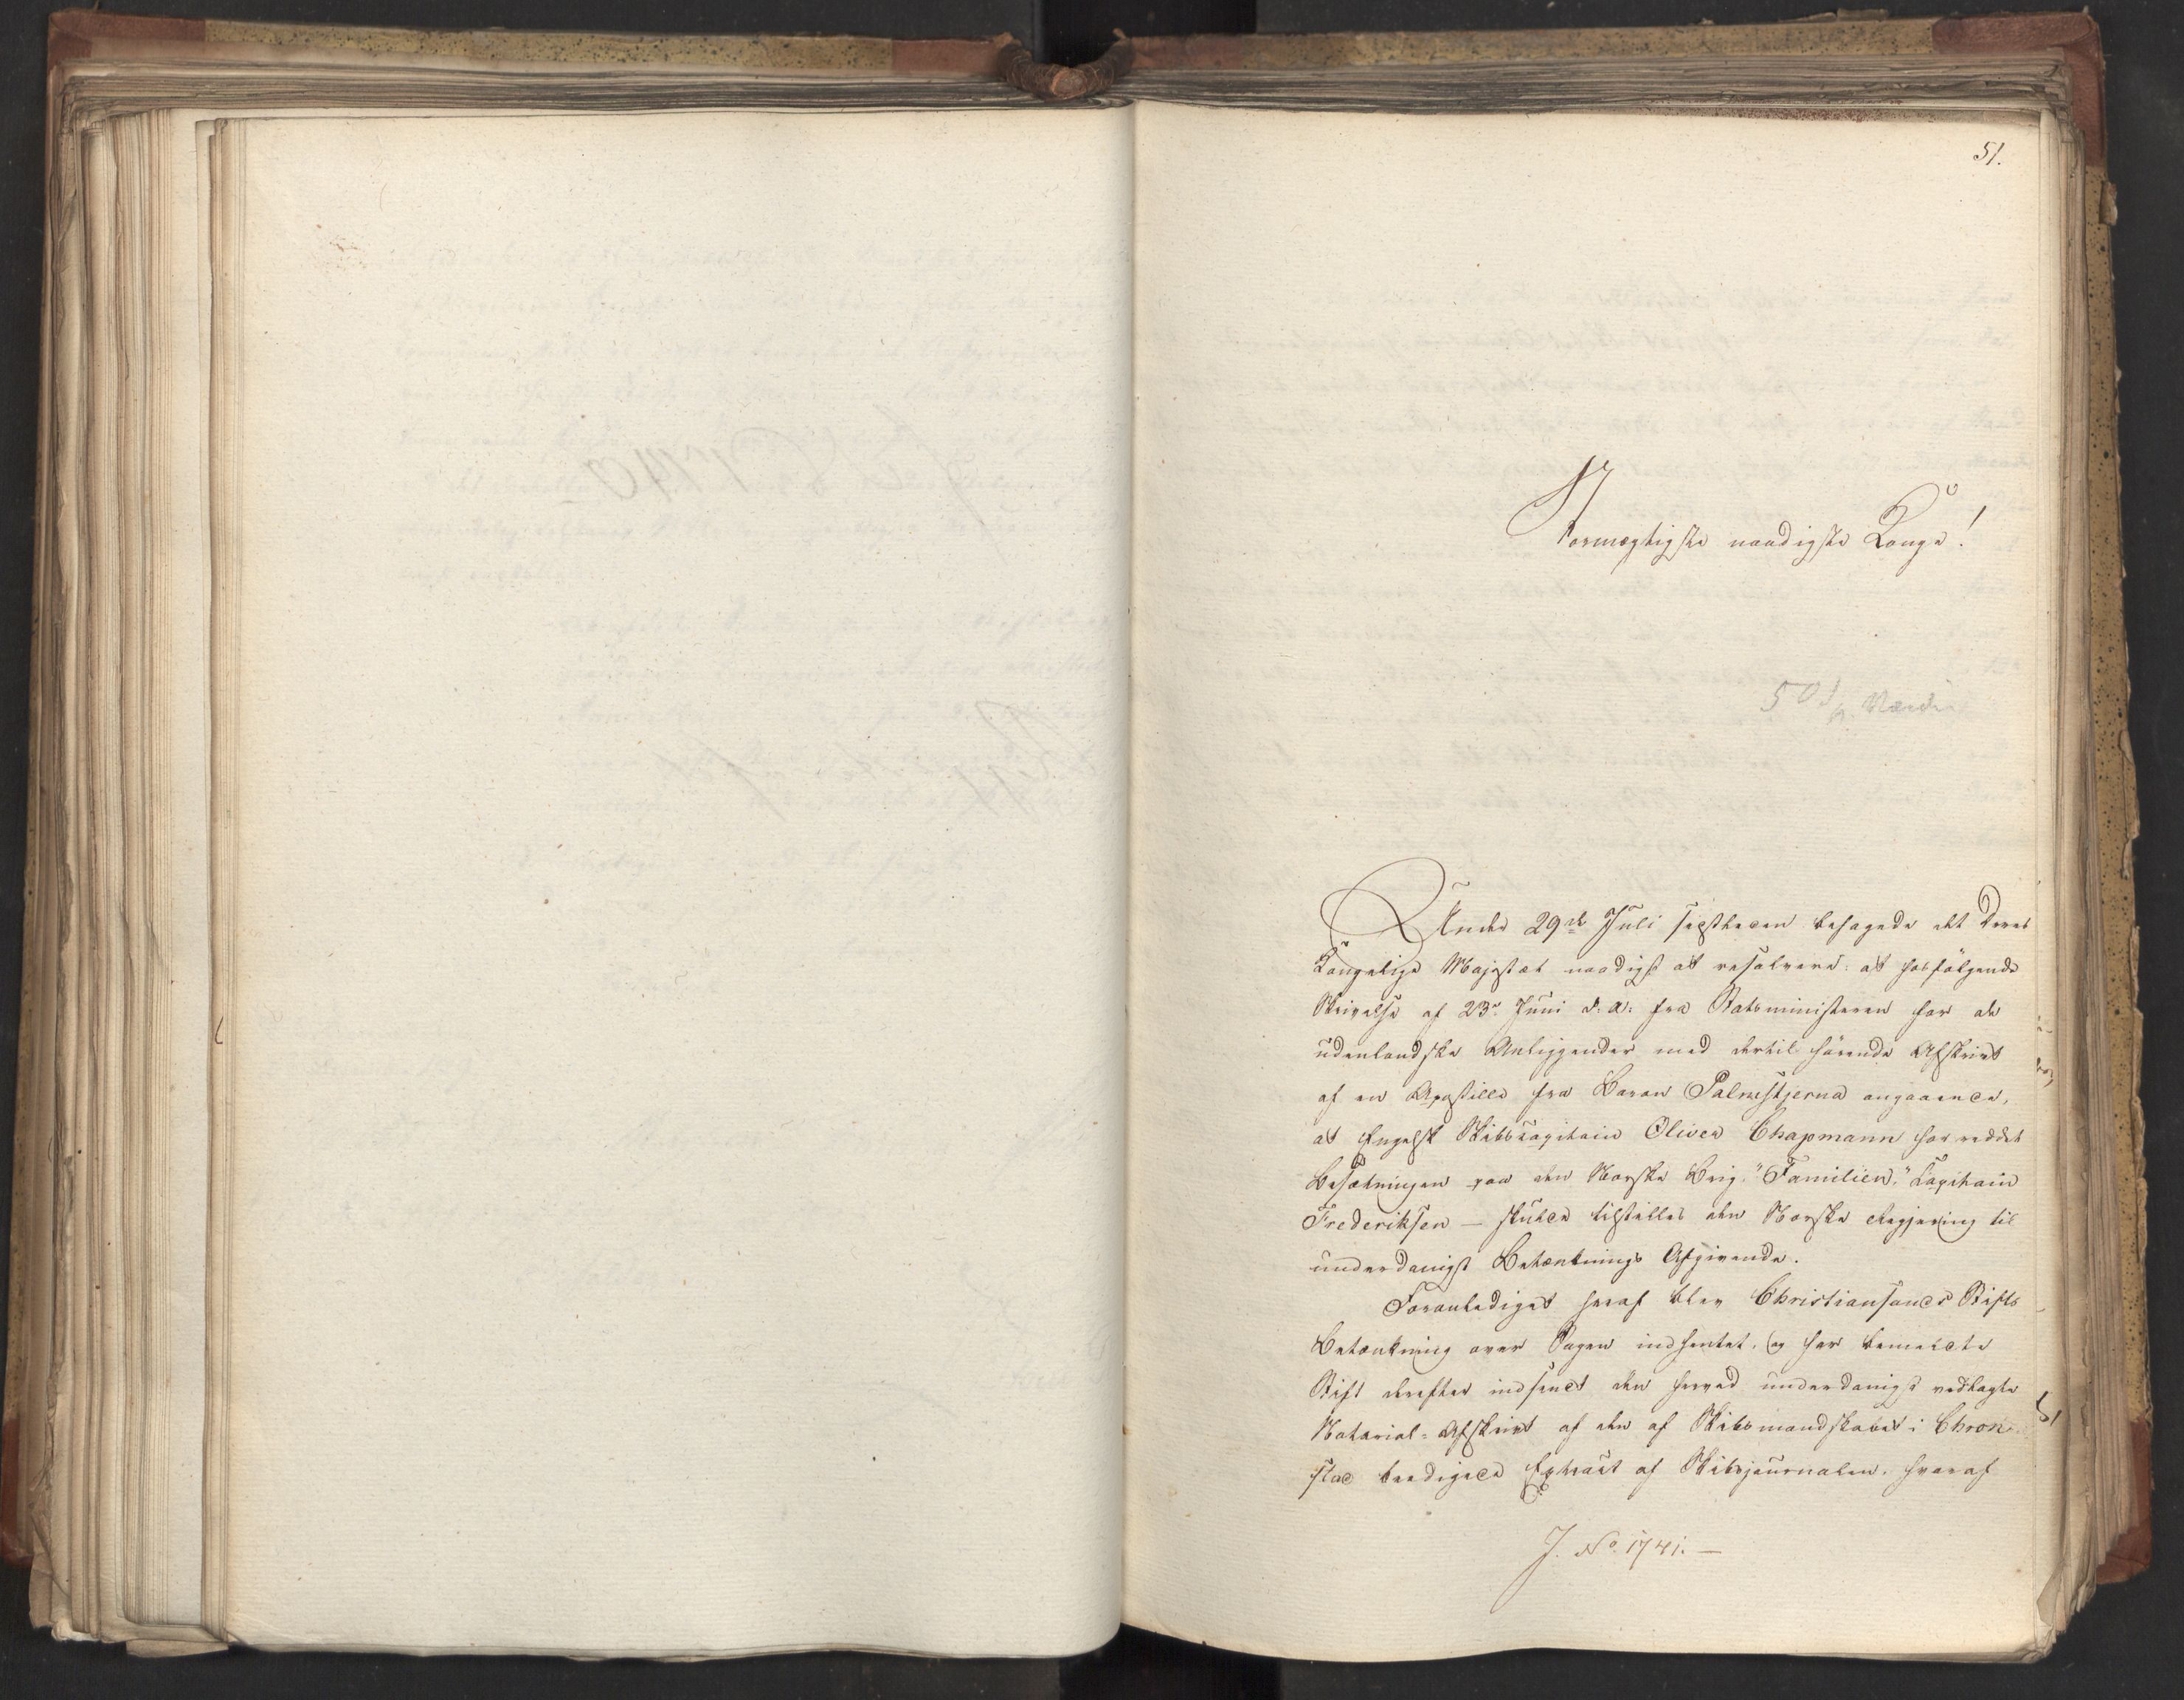 51.
Stormægtigste naadigste Konge!
50
Under 29de Juli sidstleden behagede det Deres
Kongelige Majestæt naadigst at resolvere: at hosfølgende
Skrivelse af 23de Juni d: A: fra Statsministeren for de
udenlandske Anliggender med dertil hørende Afskrivt
af en Apostille fra Baron Palmstjerna angaaende,
at Engelsk Skibscapitain Oliver Chapmann har reddet
Besætningen paa den Norske Brig "Familien," Capitain
Frederiksen — skulde tilstilles den Norske Regjering til
underdanigst Betænknings Afgivende.
Foranlediget heraf blev Christiansands Stifts
Betænkning over Sagen indhentet, og har bemeldte
Stift derefter indsendt den herved underdanigst vedlagte
Notarial-Afskrivt af den af Skibsmandskabet i Chron-
stad beedigede Extract af Skibsjournalen, hvoraf
J. No. 1741. —